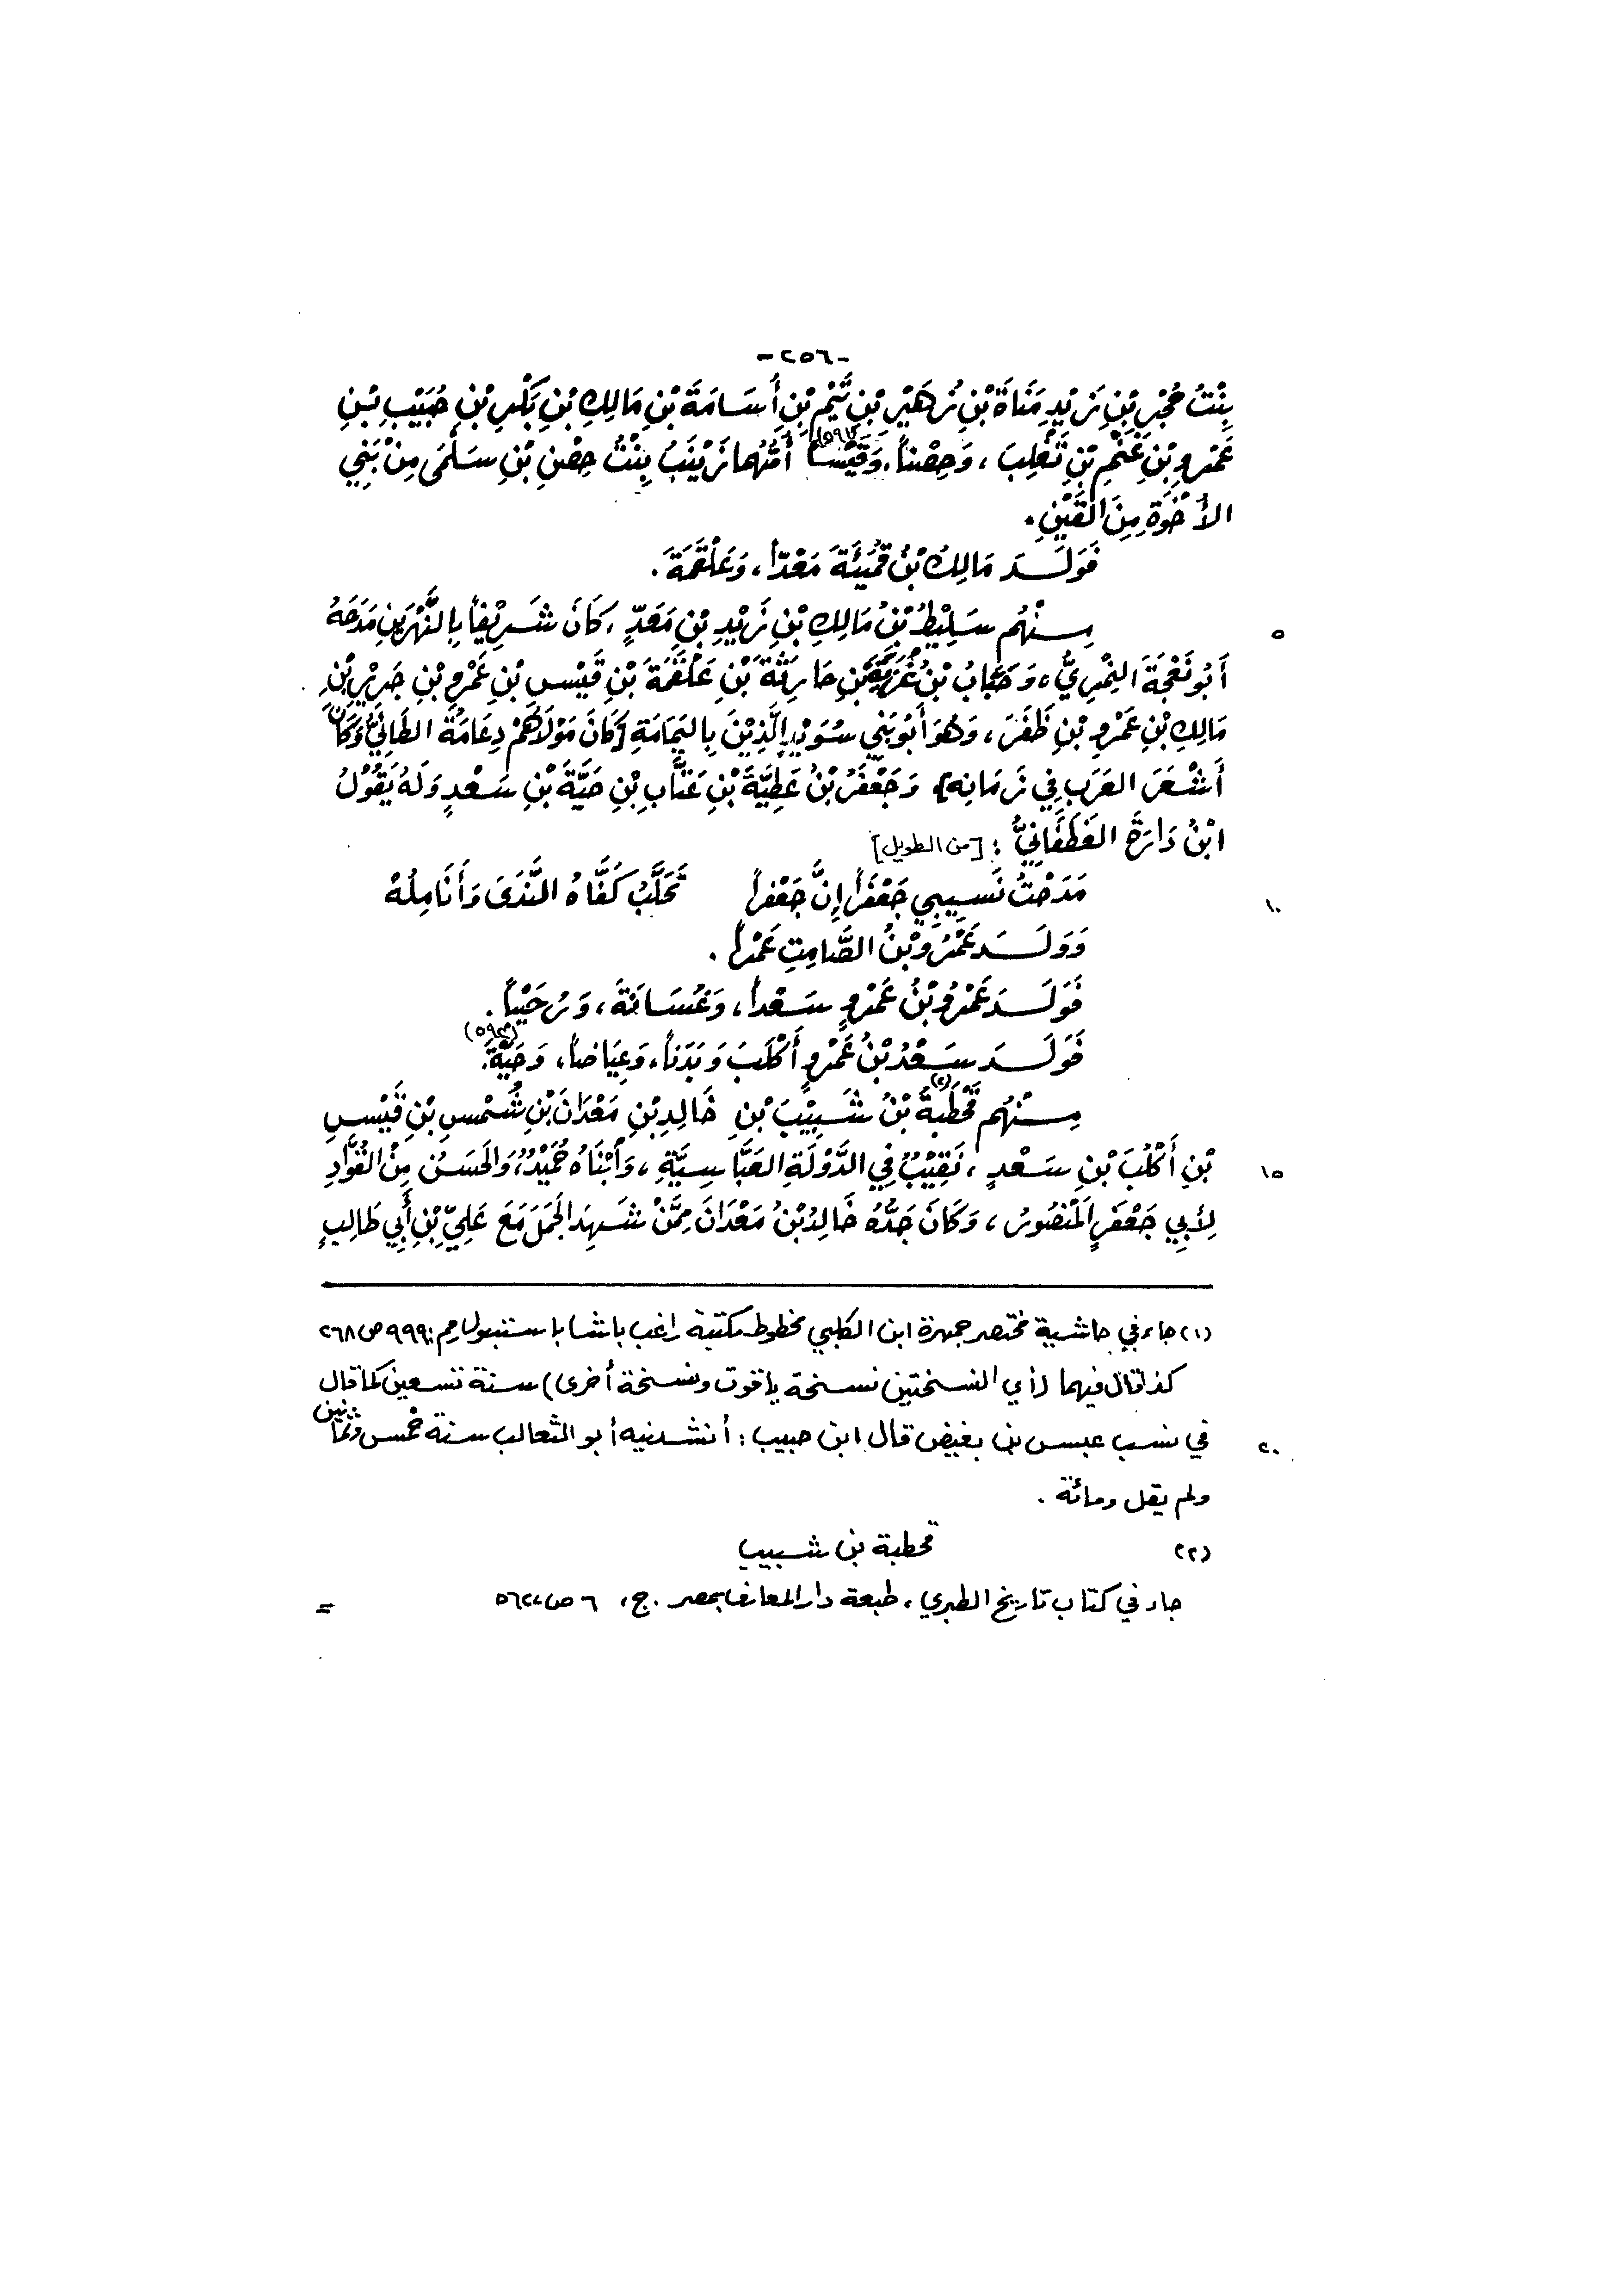 -٢٥٦-
بِنْتُ حُجْرِ بْنِ زَيْدِ مَنَاةَ بْنِ زُهَيْرِ بْنِ تَيْمِ بْنِ أُسَامَةَ بْنِ مَالِكِ بْنِ بَكْرِ بْنِ حُبَيْبِ بْنِ
عَمْرِو بْنِ غَنْمِ بْنِ تَغْلِبَ، وَحِصْناً، وَقَيْساً أُمُّهُمَا زَيْنَبُ بِنْتُ حِصْنِ بْنِ سَلْمَى مِنْ بَنِي
الأُخْوَةِ مِنَ القَيْنِ.
فَوَلَدَ مَالِكُ بْنُ قُمَيْئَةَ مَعْدّاً، وَعَلْقَمَةَ.
٥ مِنْهُم سَلِيْطُ بْنُ مَالِكِ بْنِ زَيْدِ بْنِ مَعَدٍّ، كَانَ شَرِيْفاً بِالنَّهْرَيْنِ مَدَحَهُ
أَبُو نَعْجَةَ النِّمْرِيُّ، وَحَجَابُ بْنُ بْنِ حَارِثَةَ بْنِ عَلْقَمَةَ بْنِ قَيْسِ بْنِ عَمْرِو بْنِ جَرِيْرِ بْنِ
مَالِكِ بْنِ عَمْرِو بْنِ ظَفَرَ، وَهُوَ أَبُو بَنِي سُوَيْدٍ الَّذِيْنَ بِاليَمَامَةِ [كَانَ مَوْلَاهُمْ دِعَامَةُ الطَّائِيُّ وَكَانَ
أَشْعَرَ العَرَبِ فِي زَمَانِهِ] وَجَعْفَرُ بْنُ عَطِيَّةَ بْنِ عَتَّابِ بْنِ حَيَّةَ بْنِ سَعْدٍ وَلَهُ يَقُوْلُ
ابْنُ دَارَةَ الغَطَفَانِيُّ: [من الطويل]
١٠ مَدَحْتُ نَسِيبِي جَعْفَراً إِنَّ جَعْفَراً تَحَلَّبُ كَفَّاهُ النَّدَى وَأَنَامِلُهْ
وَوَلَدَ عَمْرُو بْنُ الصَّامِتِ عَمْراً.
فَوَلَدَ عَمْرُو بْنُ عَمْرٍو سَعْداً، وَعُسَامَةَ، وَرُحَيْباً.
فَوَلَدَ سَعْدُ بْنُ عَمْرٍو أَكْلَبَ وَبَدَناً، وَعِيَاضاً، وَحَيَّةَ. (٥٩٣)
مِنْهُم قَحْطَبَةُ (٢) بْنُ شَبِيْبَ بْنِ خَالِدِ بْنِ مَعْدَانَ بْنِ شُمْسِ بْنِ قَيْسِ
١٥ بْنِ أَكْلُبَ بْنِ سَعْدٍ، نَقِيْبٌ فِي الدَّوْلَةِ العَبَّاسِيَّةِ، وَابْنَاهُ حُمَيْدٌ، وَالحَسَنُ مِنَ القُوَّادِ
لِأَبِي جَعْفَرٍ المَنْصُورِ، وَكَانَ جَدُّهُ خَالِدُ بْنُ مَعْدَانَ مِمَّنْ شَهِدَ الجَمَلَ مَعَ عَلِيِّ بْنِ أَبِي طَالِبٍ
(١) جاء في حاشية مختصر جمهرة ابن الكلبي مخطوط مكتبة راغب باشا باستنبول رقم: ٩٩٩ ص ٢٦٨
كذا قال فيهما (أي النسختين نسخة ياقوت ونسخة أخرى) سنة تسعين كما قال
٢٠ في نسب عبس بن بغيض قال ابن حبيب: أنشدنيه أبو الثعالب سنة خمس وثمانين
ولم يقل ومائة.
(٢) قحطبة بن شبيب
جاء في كتاب تاريخ الطبري، طبعة دار المعارف بمصر. ج، ٦ ص، ٥٦٢ =